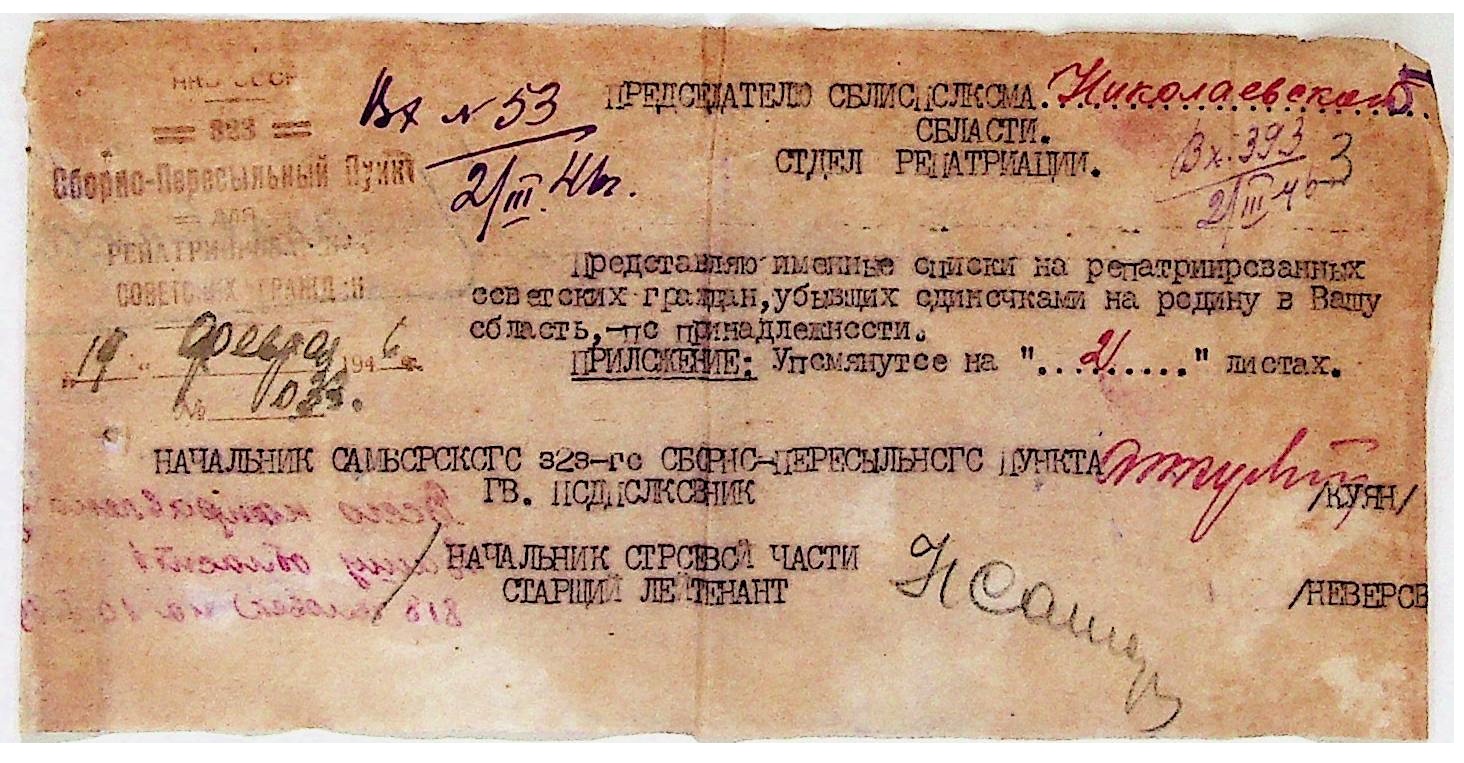 НКО СССР
= 323 =
Сборно-Пересыльный Пункт
РЕПАТРИИРОВАННЫХ
СОВЕТСКИХ ГРАЖДАН
„19" февраля 1946 г.
№ 033.
Вх № 53
2/III.46г.
ПРЕДСЕДАТЕЛЮ ОБЛИСПОЛКОМА. Николаевской
ОБЛАСТИ.
ОТДЕЛ РЕПАТРИАЦИИ.
Вх. 393
2/III 46
3
Представляю именные списки на репатриированных
советских граждан,убывших одиночками на родину в Вашу
область,-по принадлежности.
ПРИЛОЖЕНИЕ: Упомянутое на "...2....." листах.
НАЧАЛЬНИК САМБОРСКОГО 323-го СБОРНО-ПЕРЕСЫЛЬНОГО ПУНКТА
ГВ. ПОДПОЛКОВНИК /КУЯН/
НАЧАЛЬНИК СТРОЕВОЙ ЧАСТИ
СТАРШИЙ ЛЕЙТЕНАНТ /НЕВЕРОВ
Всего направлено
области
818 человек) на 10